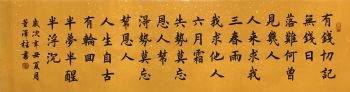 有錢切記
無錢日
落難何曾
見幾人
人來求我
三春雨
我求他人
六月霜
失勢莫忘
恩人幫
得勢莫忘
幫恩人
人生自古
有輪回
半夢半醒
半浮沉
歲次辛丑夏月
書